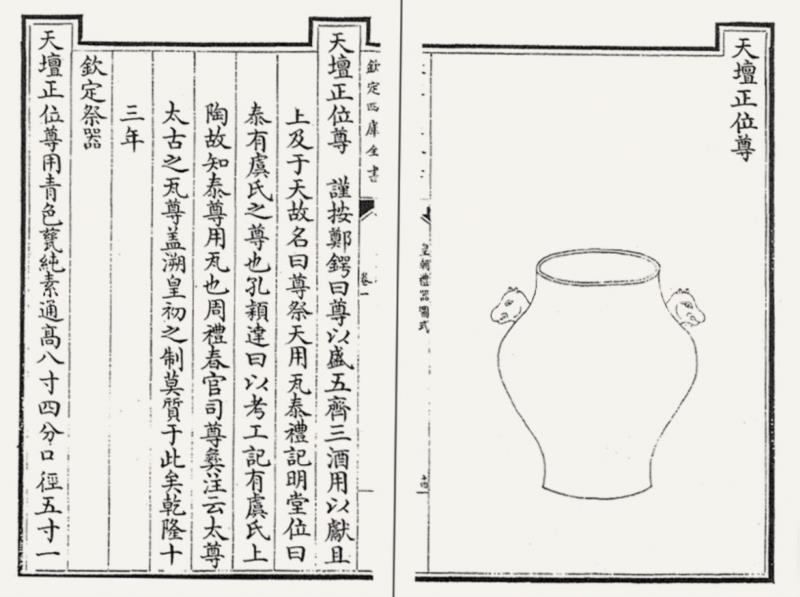 天壇正位尊
皇朝禮器圖式
十四
欽定四庫全書
卷一
天壇正位尊　謹按鄭鍔曰尊以盛五齊三酒用以獻且
上及于天故名曰尊祭天用瓦泰禮記明堂位曰
泰有虞氏之尊也孔穎達曰以考工記有虞氏上
陶故知泰尊用瓦也周禮春官司尊彝注云太尊
太古之瓦尊盖溯皇初之制莫質于此矣乾隆十
三年
欽定祭器
天壇正位尊用青色甆純素通高八寸四分口徑五寸一